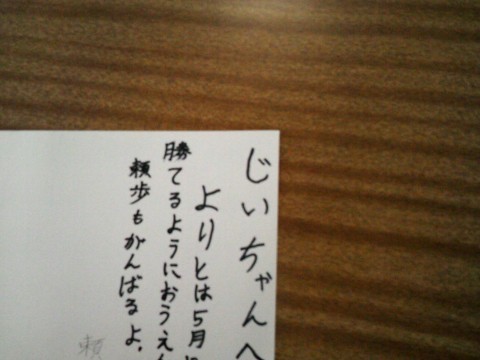 じいちゃんへ
よりとは5月
勝てるようにおうえん
頼歩もがんばるよ、
頼